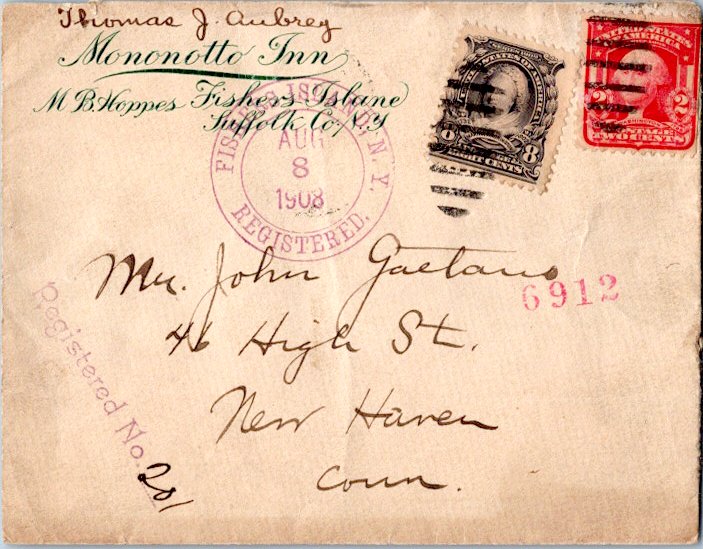 Thomas J. Aubrey
Mononotto Inn
M B. Hoppes Fishers Island
Suffolk Co. N.Y
FISHERS ISLAND, N. Y.
AUG
8
1908
REGISTERED.
SERIES 1902
UNITED STATES OF AMERICA
8 8
EIGHT CENTS
UNITED STATES
OF AMERICA
2 2
POSTAGE
TWO CENTS
Mr. John Gaetano
6912
46 High St.
New Haven
Conn.
Registered No. 201